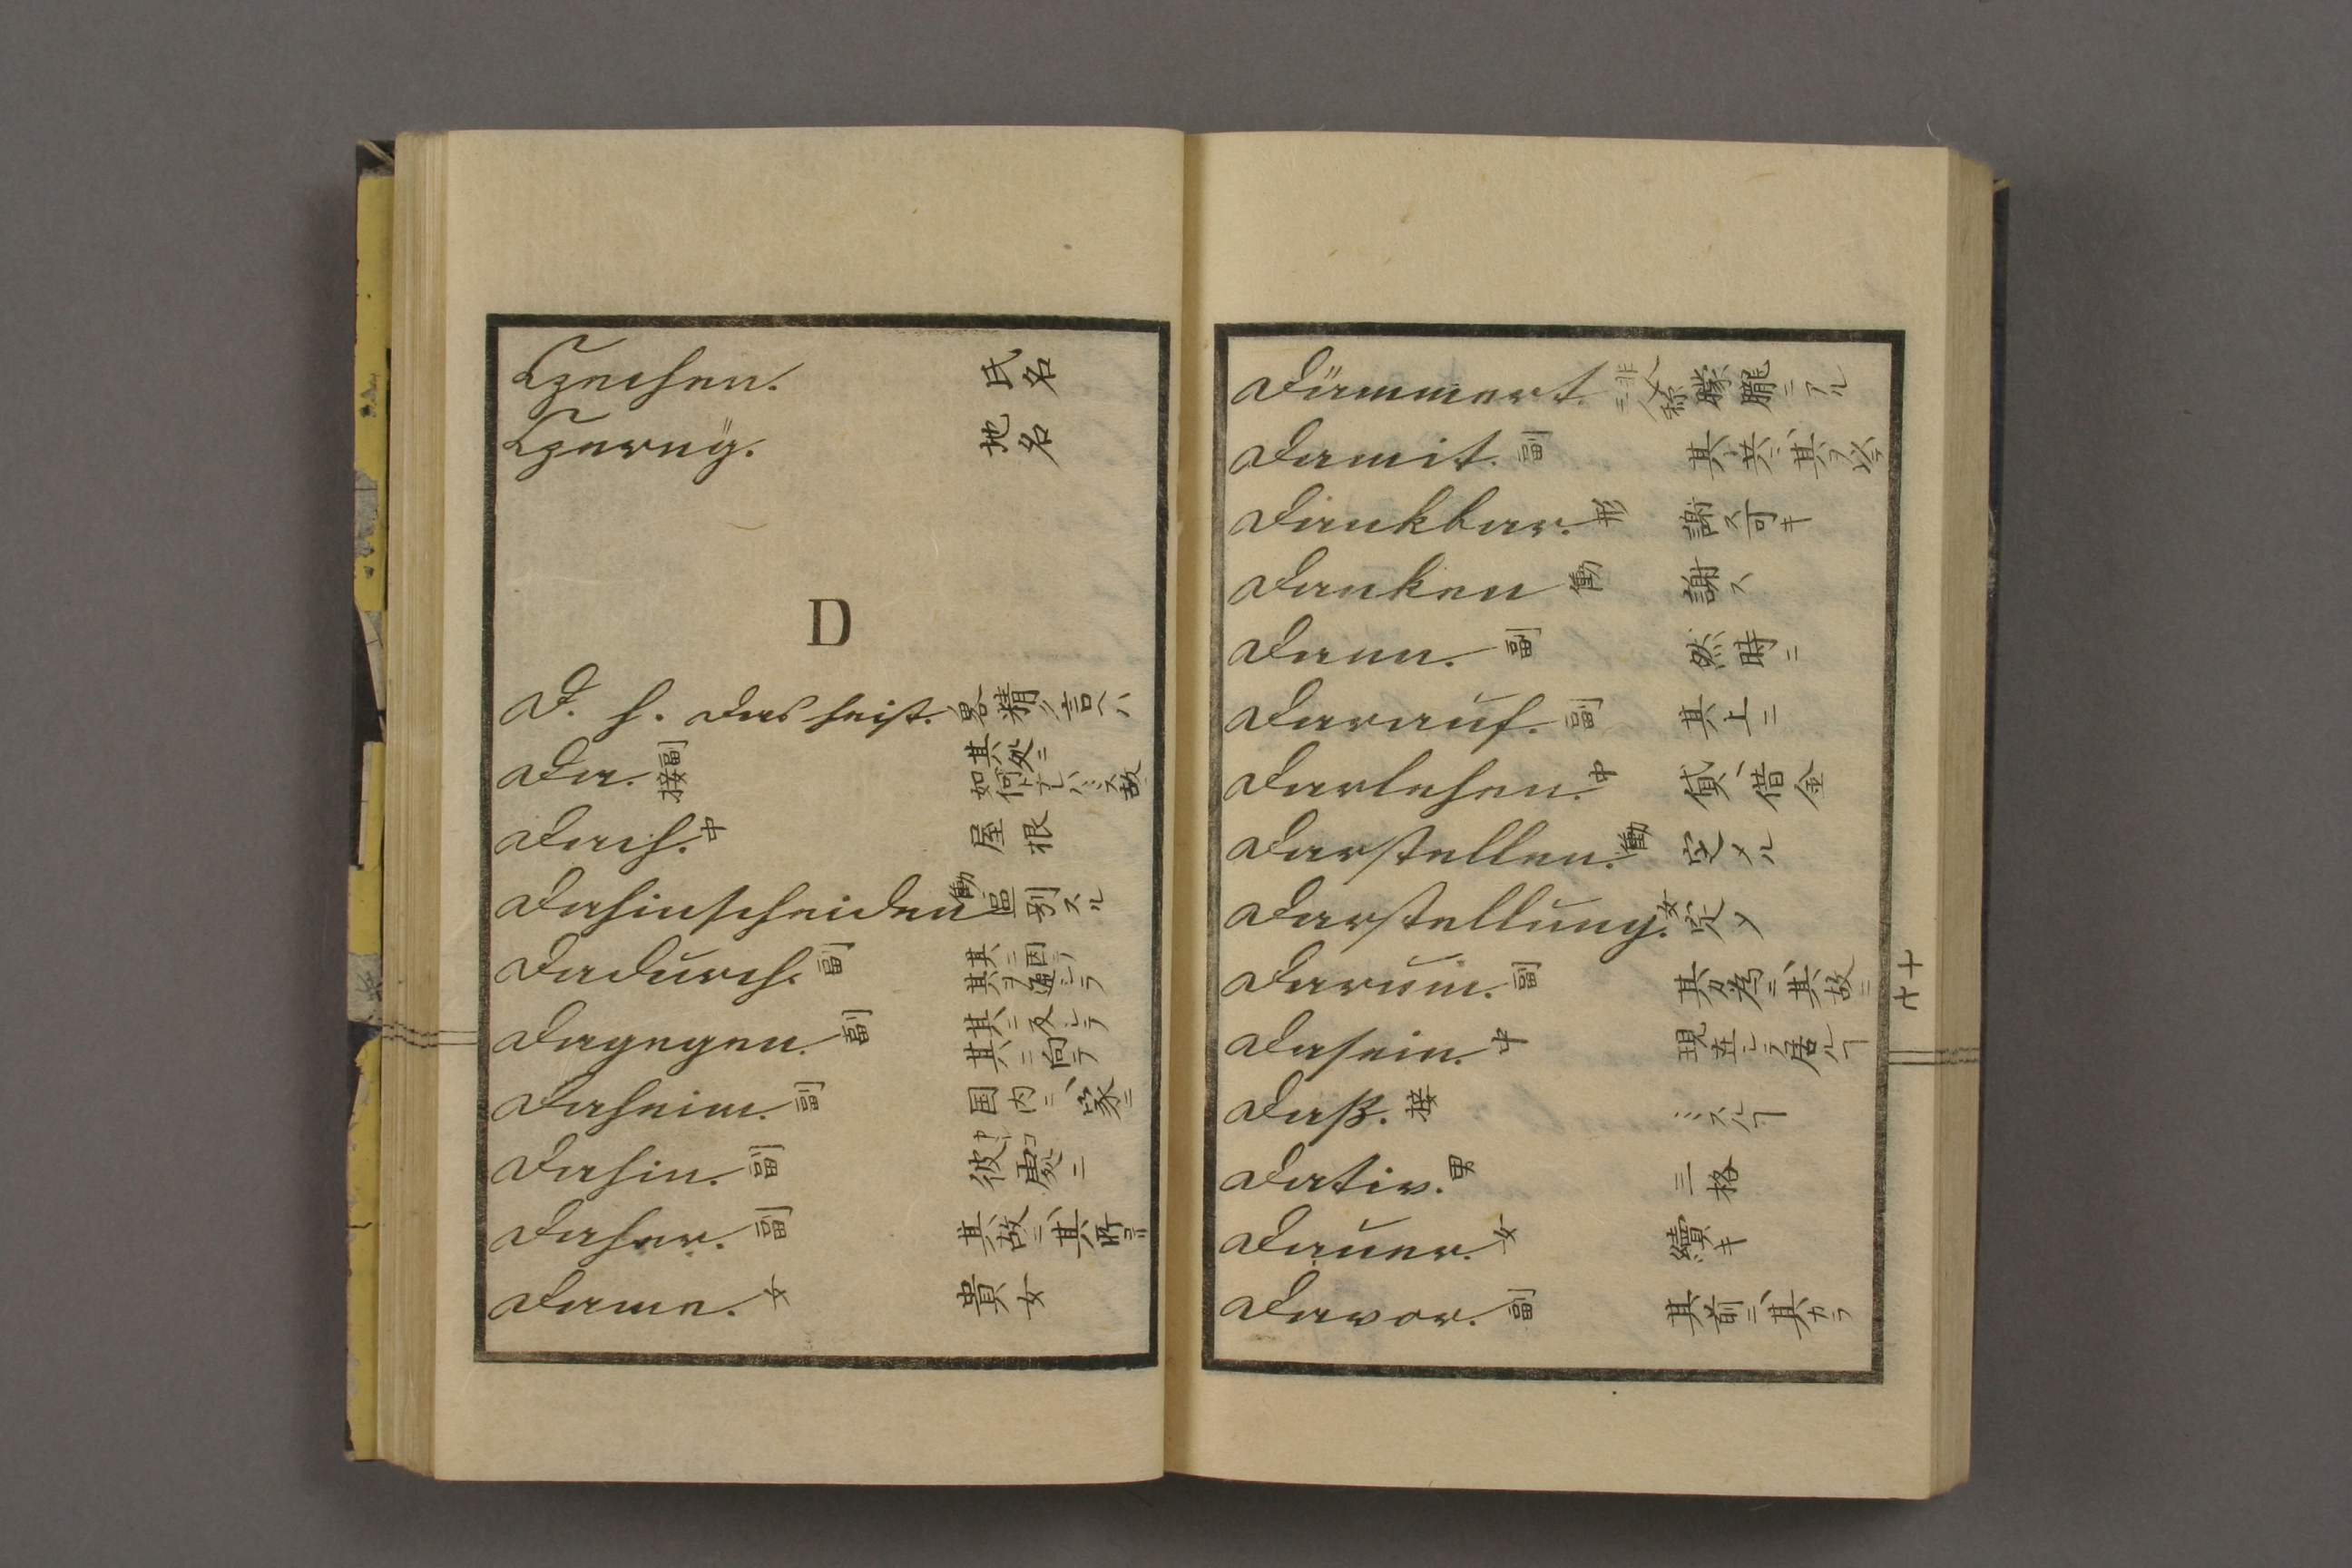 Czechen. 氏名
Czerny. 地名
D
D. h. das heist. 畧 精ク言ヘハ
Da. 副 接 其処ニ 如何トナレハ、ミス故
Dach. 中 屋根
Dahinscheiden 働 區別スル
Dadurch. 副 其ニ因テ 其ヲ通シテ
Dagegen. 副 其ニ反シテ 其ニ向テ
Daheim. 副 国内ニ、家ニ
Dahin. 副 彼処ニ
Daher. 副 其故ニ、其所ヨリ
Dame. 女 貴女
Dämmert. 非人称ニ 朦朧ニアル
Damit. 副 其ト共ニ、其ヲ以テ
Dankbar. 形 謝ス可キ
Danken 働 謝ス
Dann. 副 然ル時ニ
Darauf. 副 其上ニ
Darlehen. 中 貸、借金
Darstellen. 働 定メル
Darstellung. 女 定メ
Darum. 副 其為ニ、其故ニ
Dasein. 中 現在シテ居ルヿ
Daß. 接 ミスルヿ
Dativ. 男 三格
Dauer. 女 續キ
Davor. 副 其前ニ、其カラ
十七